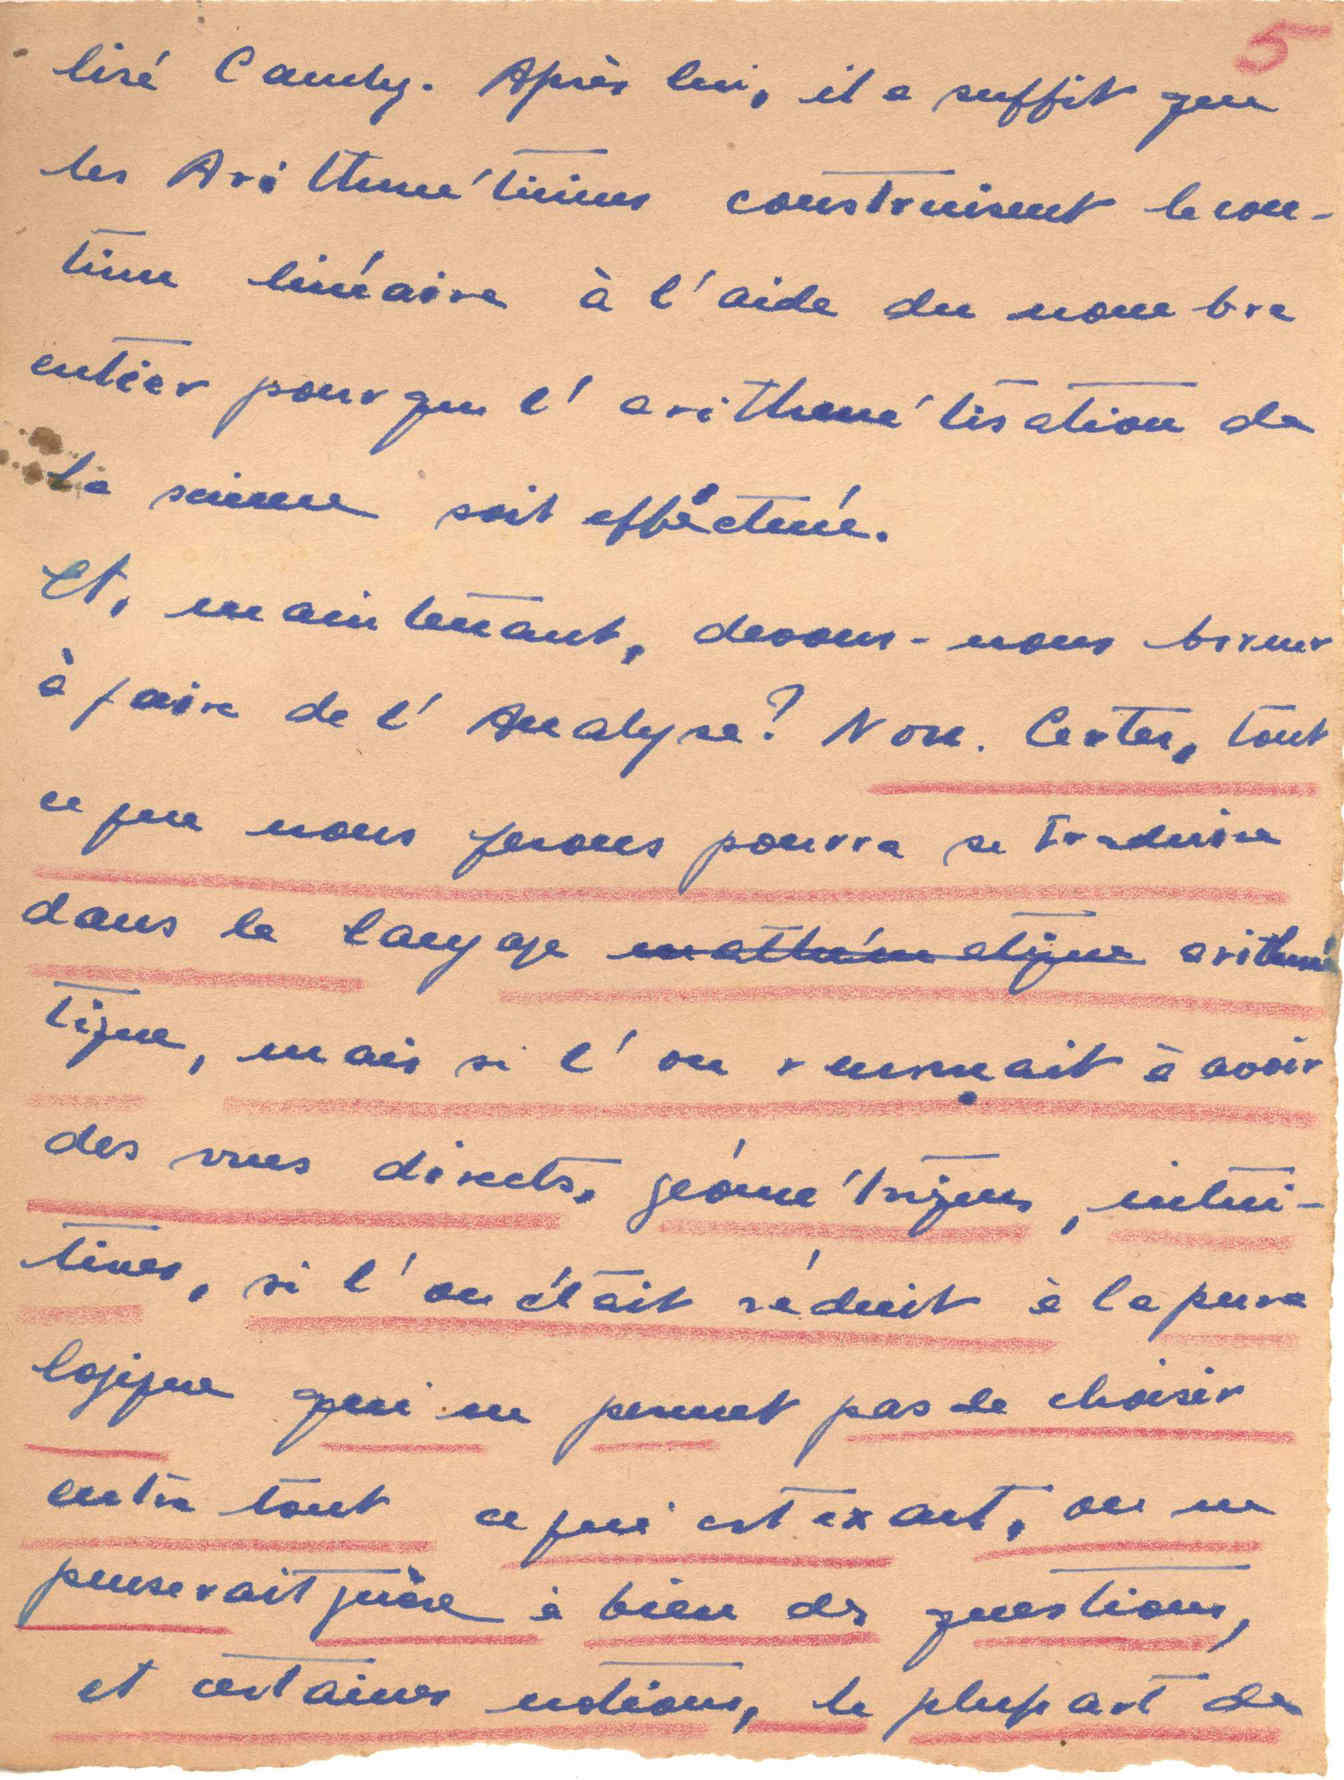 5
lisé Cauchy. Après lui, il a suffit que
les Arithméticiens construisent le con-
tinu linéaire à l'aide du nombre
entier pour que l'arithmétisation de
la science soit effectuée.
Et, maintenant, devons-nous borner
à faire de l'Analyse? Non. Certes, tout
ce que nous ferons pourra se traduire
dans le langage mathématique arithmé
tique, mais si l'on renonçait à avoir
des vues directs, géométriques, intui-
tives, si l'on était réduit à la pure
logique qui ne permet pas de choisir
entre tout ce qui est exact, on ne
penserait guère à bien des questions,
et certaines notions, la plupart de